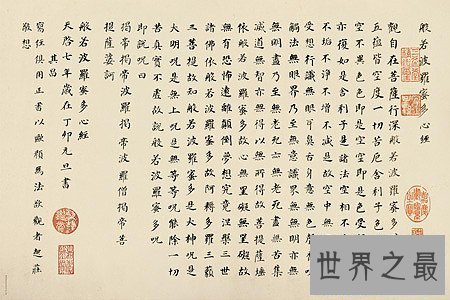 般若波羅蜜多心經
觀自在菩薩行深般若波羅蜜多
五蘊皆空度一切苦厄舍利子色
空不異色色即是空空即是色受
亦復如是舍利子是諸法空相不
不垢不淨不增不減是故空中無
受想行識無眼耳鼻舌身意無色聲
觸法無眼界乃至無意識界無無明亦無
無明盡乃至無老死亦無老死盡無苦集
滅道無智亦無得以無所得故菩提薩埵
依般若波羅蜜多故心無罣礙無罣礙故
無有恐怖遠離顛倒夢想究竟涅槃三世
諸佛依般若波羅蜜多故阿耨多羅三藐
三菩提故知般若波羅蜜多是大神咒是
大明咒是無上咒是無等等咒能除一切
苦真實不虛故說般若波羅蜜多咒
即說咒曰
揭帝揭帝波羅揭帝波羅僧揭帝菩
提薩婆訶
般若波羅蜜多心經
天啓七年歲在丁卯元旦書
其昌
寫經俱用正書以歐顏為法欲觀者起莊
敬想
世界之最